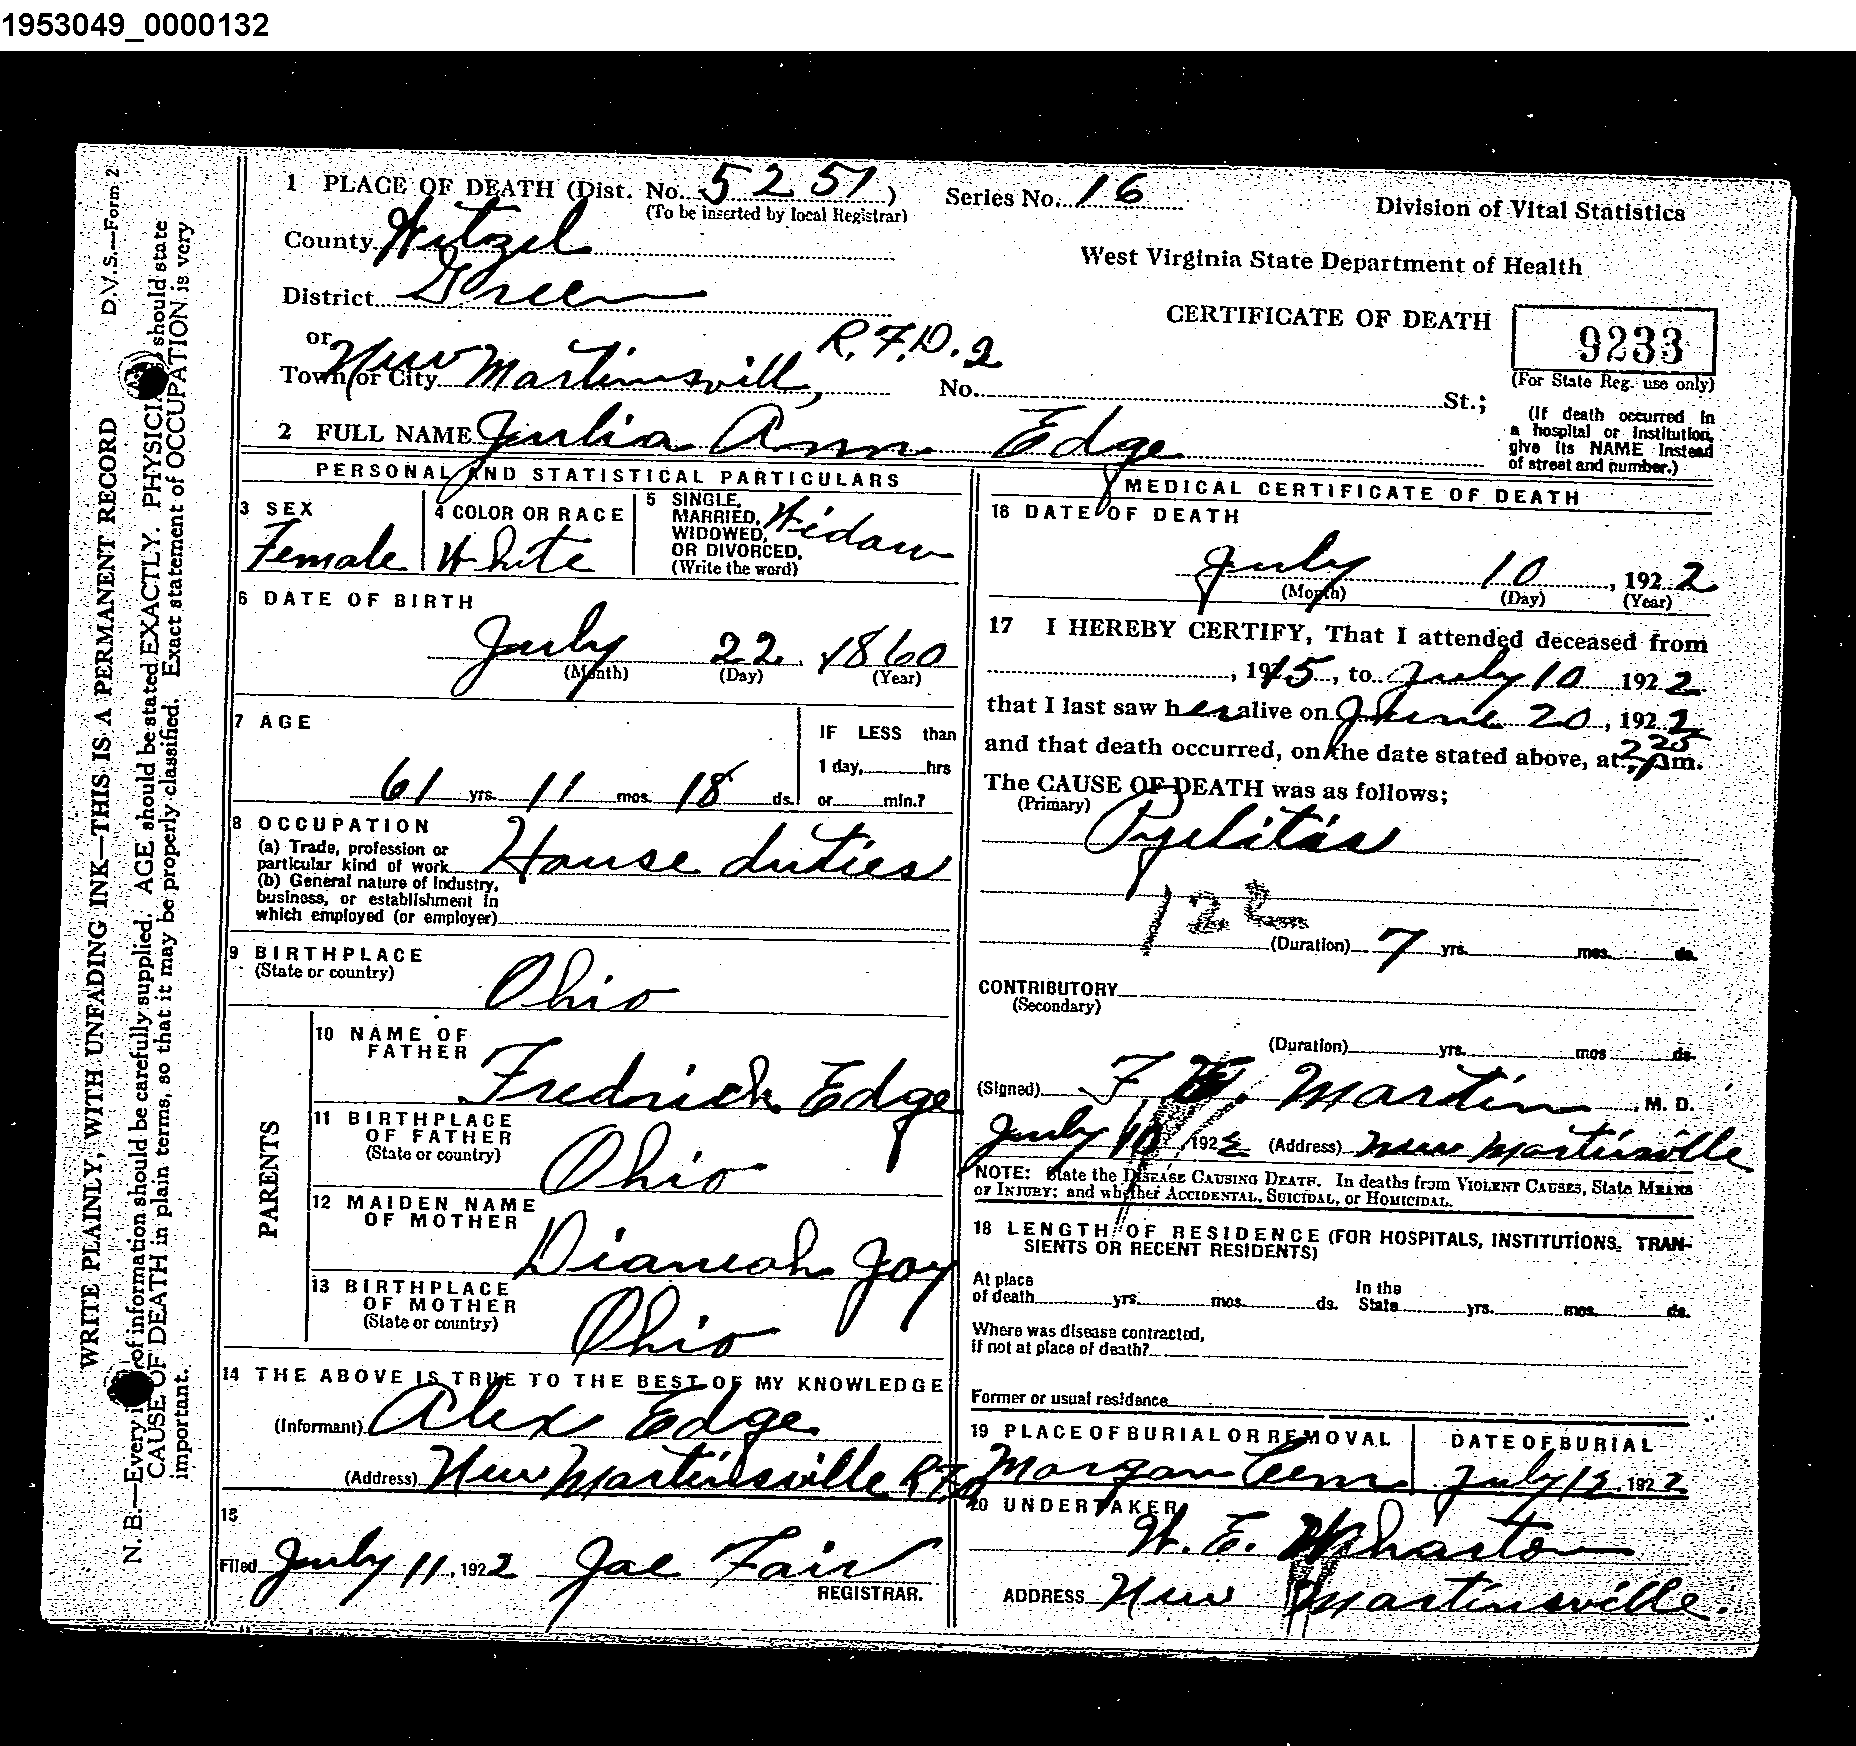 1953049_0000132
D.V.S.—Form 2
WRITE PLAINLY, WITH UNFADING INK—THIS IS A PERMANENT RECORD
N. B.—Every of information should be carefully supplied. AGE should be stated EXACTLY. PHYSICIA should state
CAUSE OF DEATH in plain terms, so that it may be properly classified. Exact statement of OCCUPATION is very
important.
1 PLACE OF DEATH (Dist. No. 5251) Series No. 16
(To be inserted by local Registrar)
Division of Vital Statistics
County Wetzel
West Virginia State Department of Health
District Green
CERTIFICATE OF DEATH
9233
(For State Reg. use only)
or
Town or City New Martinsvill, R.F.D. 2 No. St.;
(If death occurred in
a hospital or institution,
give its NAME instead
of street and number.)
2 FULL NAME Julia Ann Edge
PERSONAL AND STATISTICAL PARTICULARS
3 SEX
Female
4 COLOR OR RACE
White
5 SINGLE,
MARRIED,
WIDOWED,
OR DIVORCED.
(Write the word)
Widow
6 DATE OF BIRTH
July 22 1860
(Month) (Day) (Year)
7 AGE
61 yrs. 11 mos. 18 ds.
IF LESS than
1 day, hrs
or min.?
8 OCCUPATION
(a) Trade, profession or
particular kind of work House duties
(b) General nature of Industry,
business, or establishment in
which employed (or employer)
9 BIRTHPLACE
(State or country)
Ohio
PARENTS
10 NAME OF
FATHER
Fredrick Edge
11 BIRTHPLACE
OF FATHER
(State or country)
Ohio
12 MAIDEN NAME
OF MOTHER
Dianeah Joy
13 BIRTHPLACE
OF MOTHER
(State or country)
Ohio
14 THE ABOVE IS TRUE TO THE BEST OF MY KNOWLEDGE
(Informant) Alex Edge
(Address) New Martinsville RFD
15
Filed July 11, 1922 Jae Fair
REGISTRAR.
MEDICAL CERTIFICATE OF DEATH
16 DATE OF DEATH
July 10, 1922
(Month) (Day) (Year)
17 I HEREBY CERTIFY, That I attended deceased from
, 1915, to July 10 1922
that I last saw her alive on June 20, 1922
and that death occurred, on the date stated above, at 2 25 Pm.
The CAUSE OF DEATH was as follows;
(Primary)
Pyelitis
122
(Duration) 7 yrs. mos. ds.
CONTRIBUTORY
(Secondary)
(Duration) yrs. mos ds.
(Signed) F. E. Martin M. D.
July 10 1922 (Address) New Martinsville
NOTE: State the DISEASE CAUSING DEATH. In deaths from VIOLENT CAUSES, State MEANS
OF INJURY; and whether ACCIDENTAL, SUICIDAL, or HOMICIDAL.
18 LENGTH OF RESIDENCE (FOR HOSPITALS, INSTITUTIONS, TRAN-
SIENTS OR RECENT RESIDENTS)
At place
of death yrs. mos. ds.
In the
State yrs. mos. ds.
Where was disease contracted,
if not at place of death?
Former or usual residence
19 PLACE OF BURIAL OR REMOVAL
Morgan Cem
DATE OF BURIAL
July 12, 1922
20 UNDERTAKER
W. E. Wharton
ADDRESS New Martinsville.